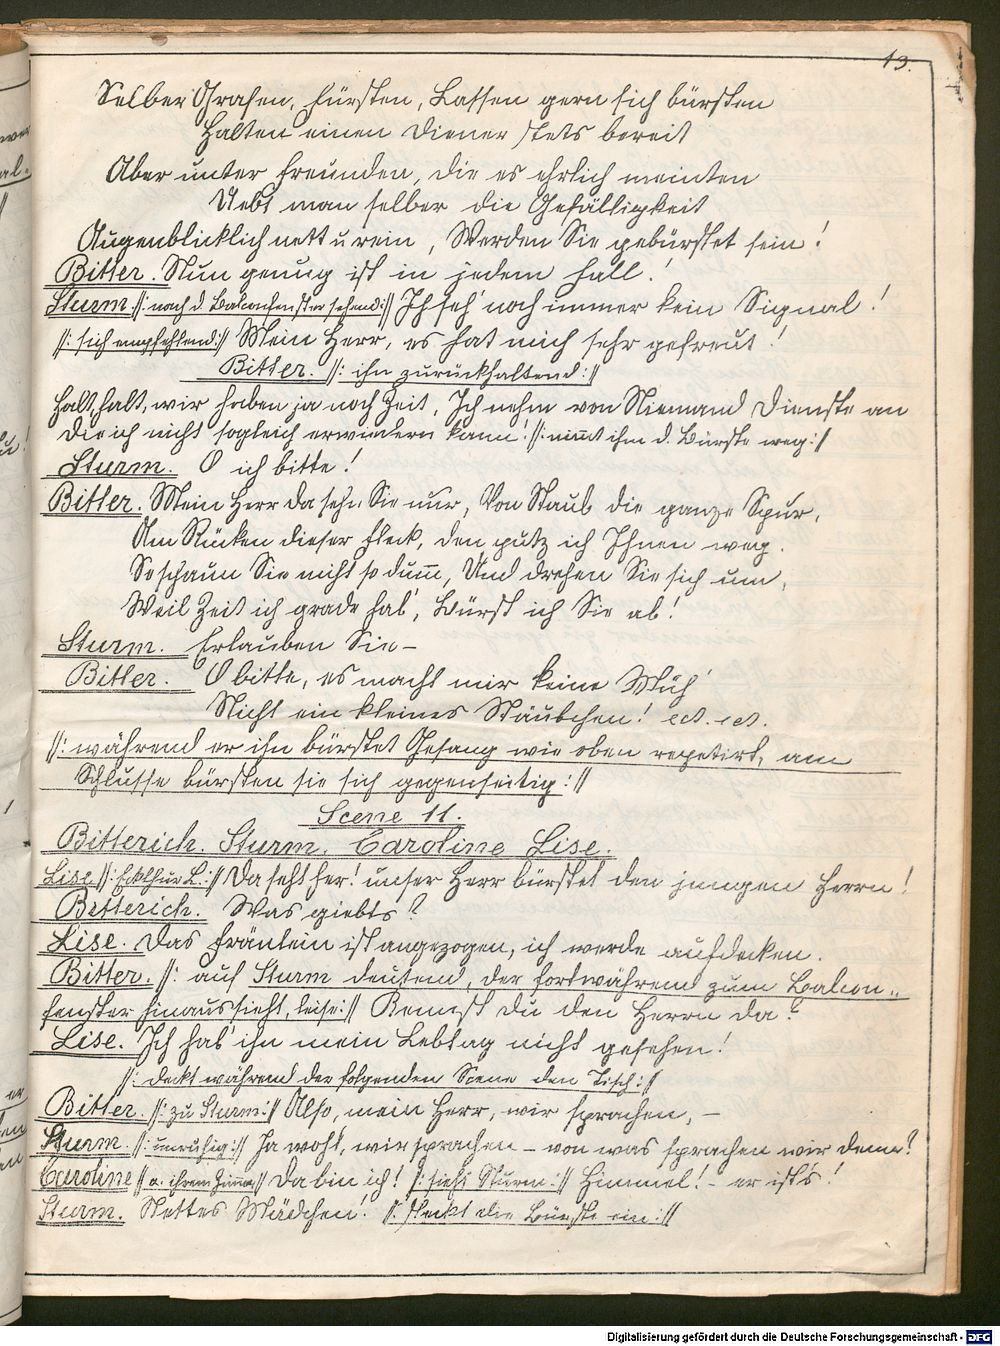 19.
Selber Grafen, Fürsten, Lassen gern sich bürsten
Halten einen Diener stets bereit
Aber unter Freunden, die es ehrlich meinten
Uebt man selber die Gefälligkeit
Augenblicklich nett u rein, Werden Sie gebürstet sein!
Bitter. Nun genug ist in jedem Fall!
Sturm //: nach d Balconfenster sehend:// Ich seh' noch immer kein Signal!
//: sich empfehlend:// Mein Herr, es hat mich sehr gefreut!
Bitter. //: ihn zurückhaltend://
Halt, halt, wir haben ja noch Zeit, Ich nehm von Niemand Dienste an
Die ich nicht sogleich erwiedern kann! //: nimmt ihm d. Bürste weg://
Sturm. O ich bitte!
Bitter. Mein Herr da sehn Sie nur, Von Staub die ganze Spur,
Am Rücken dieser Fleck, den putz ich Ihnen weg.
So schaun Sie nicht so dum̅, Und drehen Sie sich um,
Weil Zeit ich grade hab', Bürst ich Sie ab!
Sturm. Erlauben Sie –
Bitter. O bitte, es macht mir keine Müh'
Nicht ein kleines Stäubchen! ect. ect.
//: während er ihn bürstet Gesang wie oben repetirt, am
Schlusse bürsten sie sich gegenseitig://
Scene 11.
Bitterich. Sturm. Caroline Lise.
Lise //: Eckthür L:// Da seht her! unser Herr bürstet den jungen Herrn!
Bitterich. Was giebts?
Lise. Das Fräulein ist angezogen, ich werde aufdecken.
Bitter. //: auf Sturm deutend, der fortwährend zum Balcon„
fenster hinaussieht, leise:// Kennst du den Herrn da?
Lise. Ich hab' ihn mein Lebtag nicht gesehen!
//: deckt während der folgenden Scene den Tisch://
Bitter. //: zu Sturm:// Also, mein Herr, wir sprachen, –
Sturm. //: unruhig:// Ja wohl, wir sprachen – von was sprachen wir denn?
Caroline //: a. ihrem Zimmer// Da bin ich! //: sieht Sturm:// Himmel! – er ist's!
Sturm. Nettes Mädchen! //: steckt die Bürste ein://
Digitalisierung gefördert durch die Deutsche Forschungsgemeinschaft - DFG